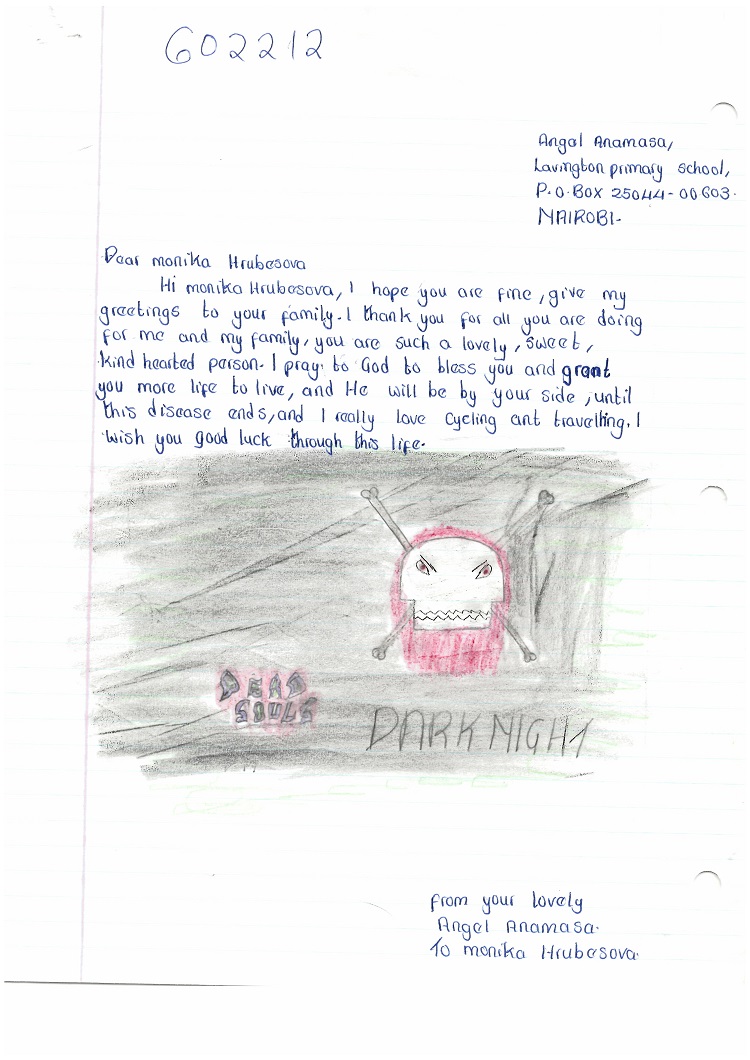 602212
Angel Anamasa,
Lavington primary school,
P.O.BOX 25044-00603.
NAIROBI-
Dear monika Hrubesova
Hi monika Hrubesova, I hope you are fine, give my
greetings to your family. I thank you for all you are doing
for me and my family, you are such a lovely, sweet,
kind hearted person. I pray to God to bless you and grant
you more life to live, and He will be by your side, until
this disease ends, and I really love cycling ant travelling. I
wish you good luck through this life.
DEAD
SOULS
DARK NIGHT
from your lovely
Angel Anamasa.
To monika Hrubesova.